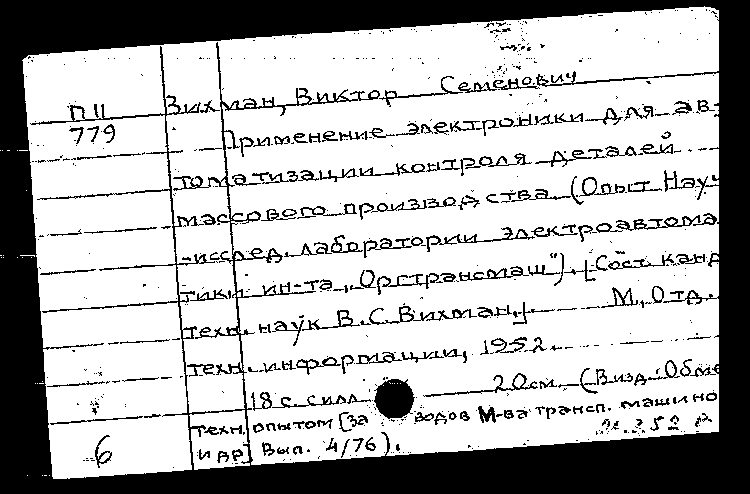 П 11 Вихман, Виктор Семенович
779 Применение электроники для ав-
томатизации контроля деталей
массового производства. (Опыт Науч
-исслед. лаборатории электроавтома
тики ин-та „Оргтрансмаш"). [Сост. канд
техн. наук В.С. Вихман.]. М., Отд.
техн. информации, 1952.
18 с. с илл 20 см. (В изд.: Обме
техн. опытом [за водов М-ва трансп. машино
6 и др.] Вып. 4/76).